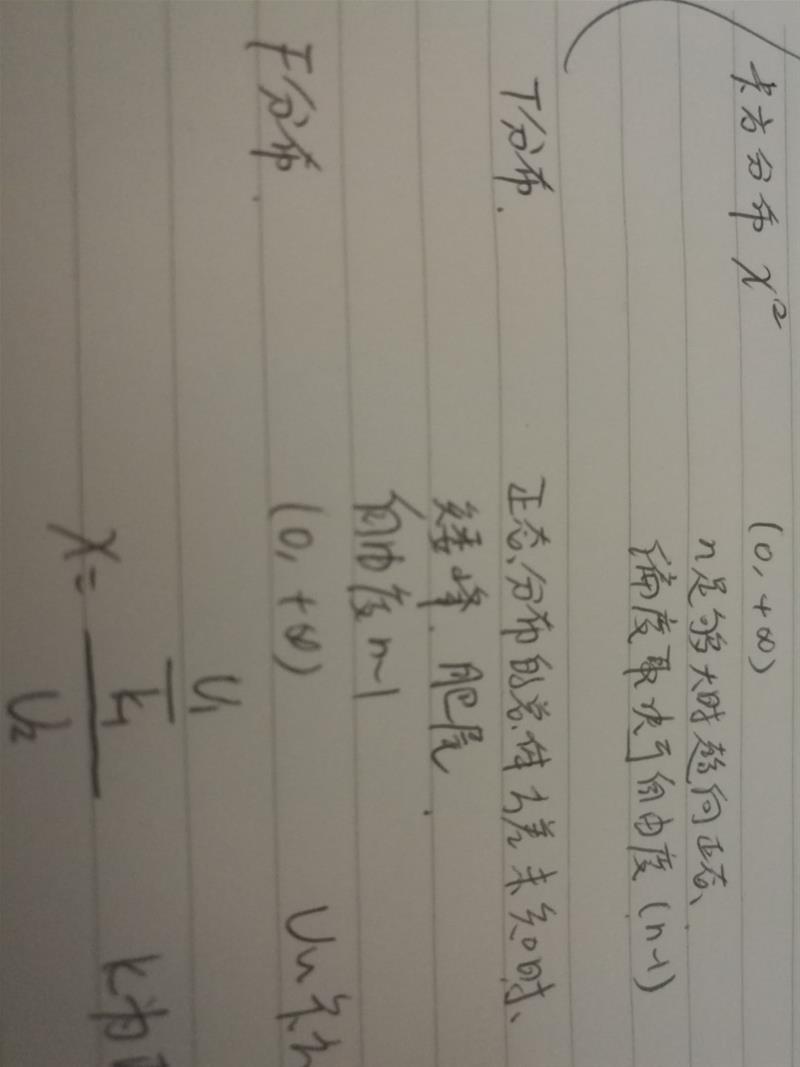 卡方分布 χ² (0, +∞)
n足够大时趋向正态、
偏度取决于自由度 (n-1)
T分布. 正态分布的总体方差未知时、
矮峰. 肥尾.
自由度 n-1
F分布. (0, +∞)
U₁ U
χ= k₁ k为
U₂